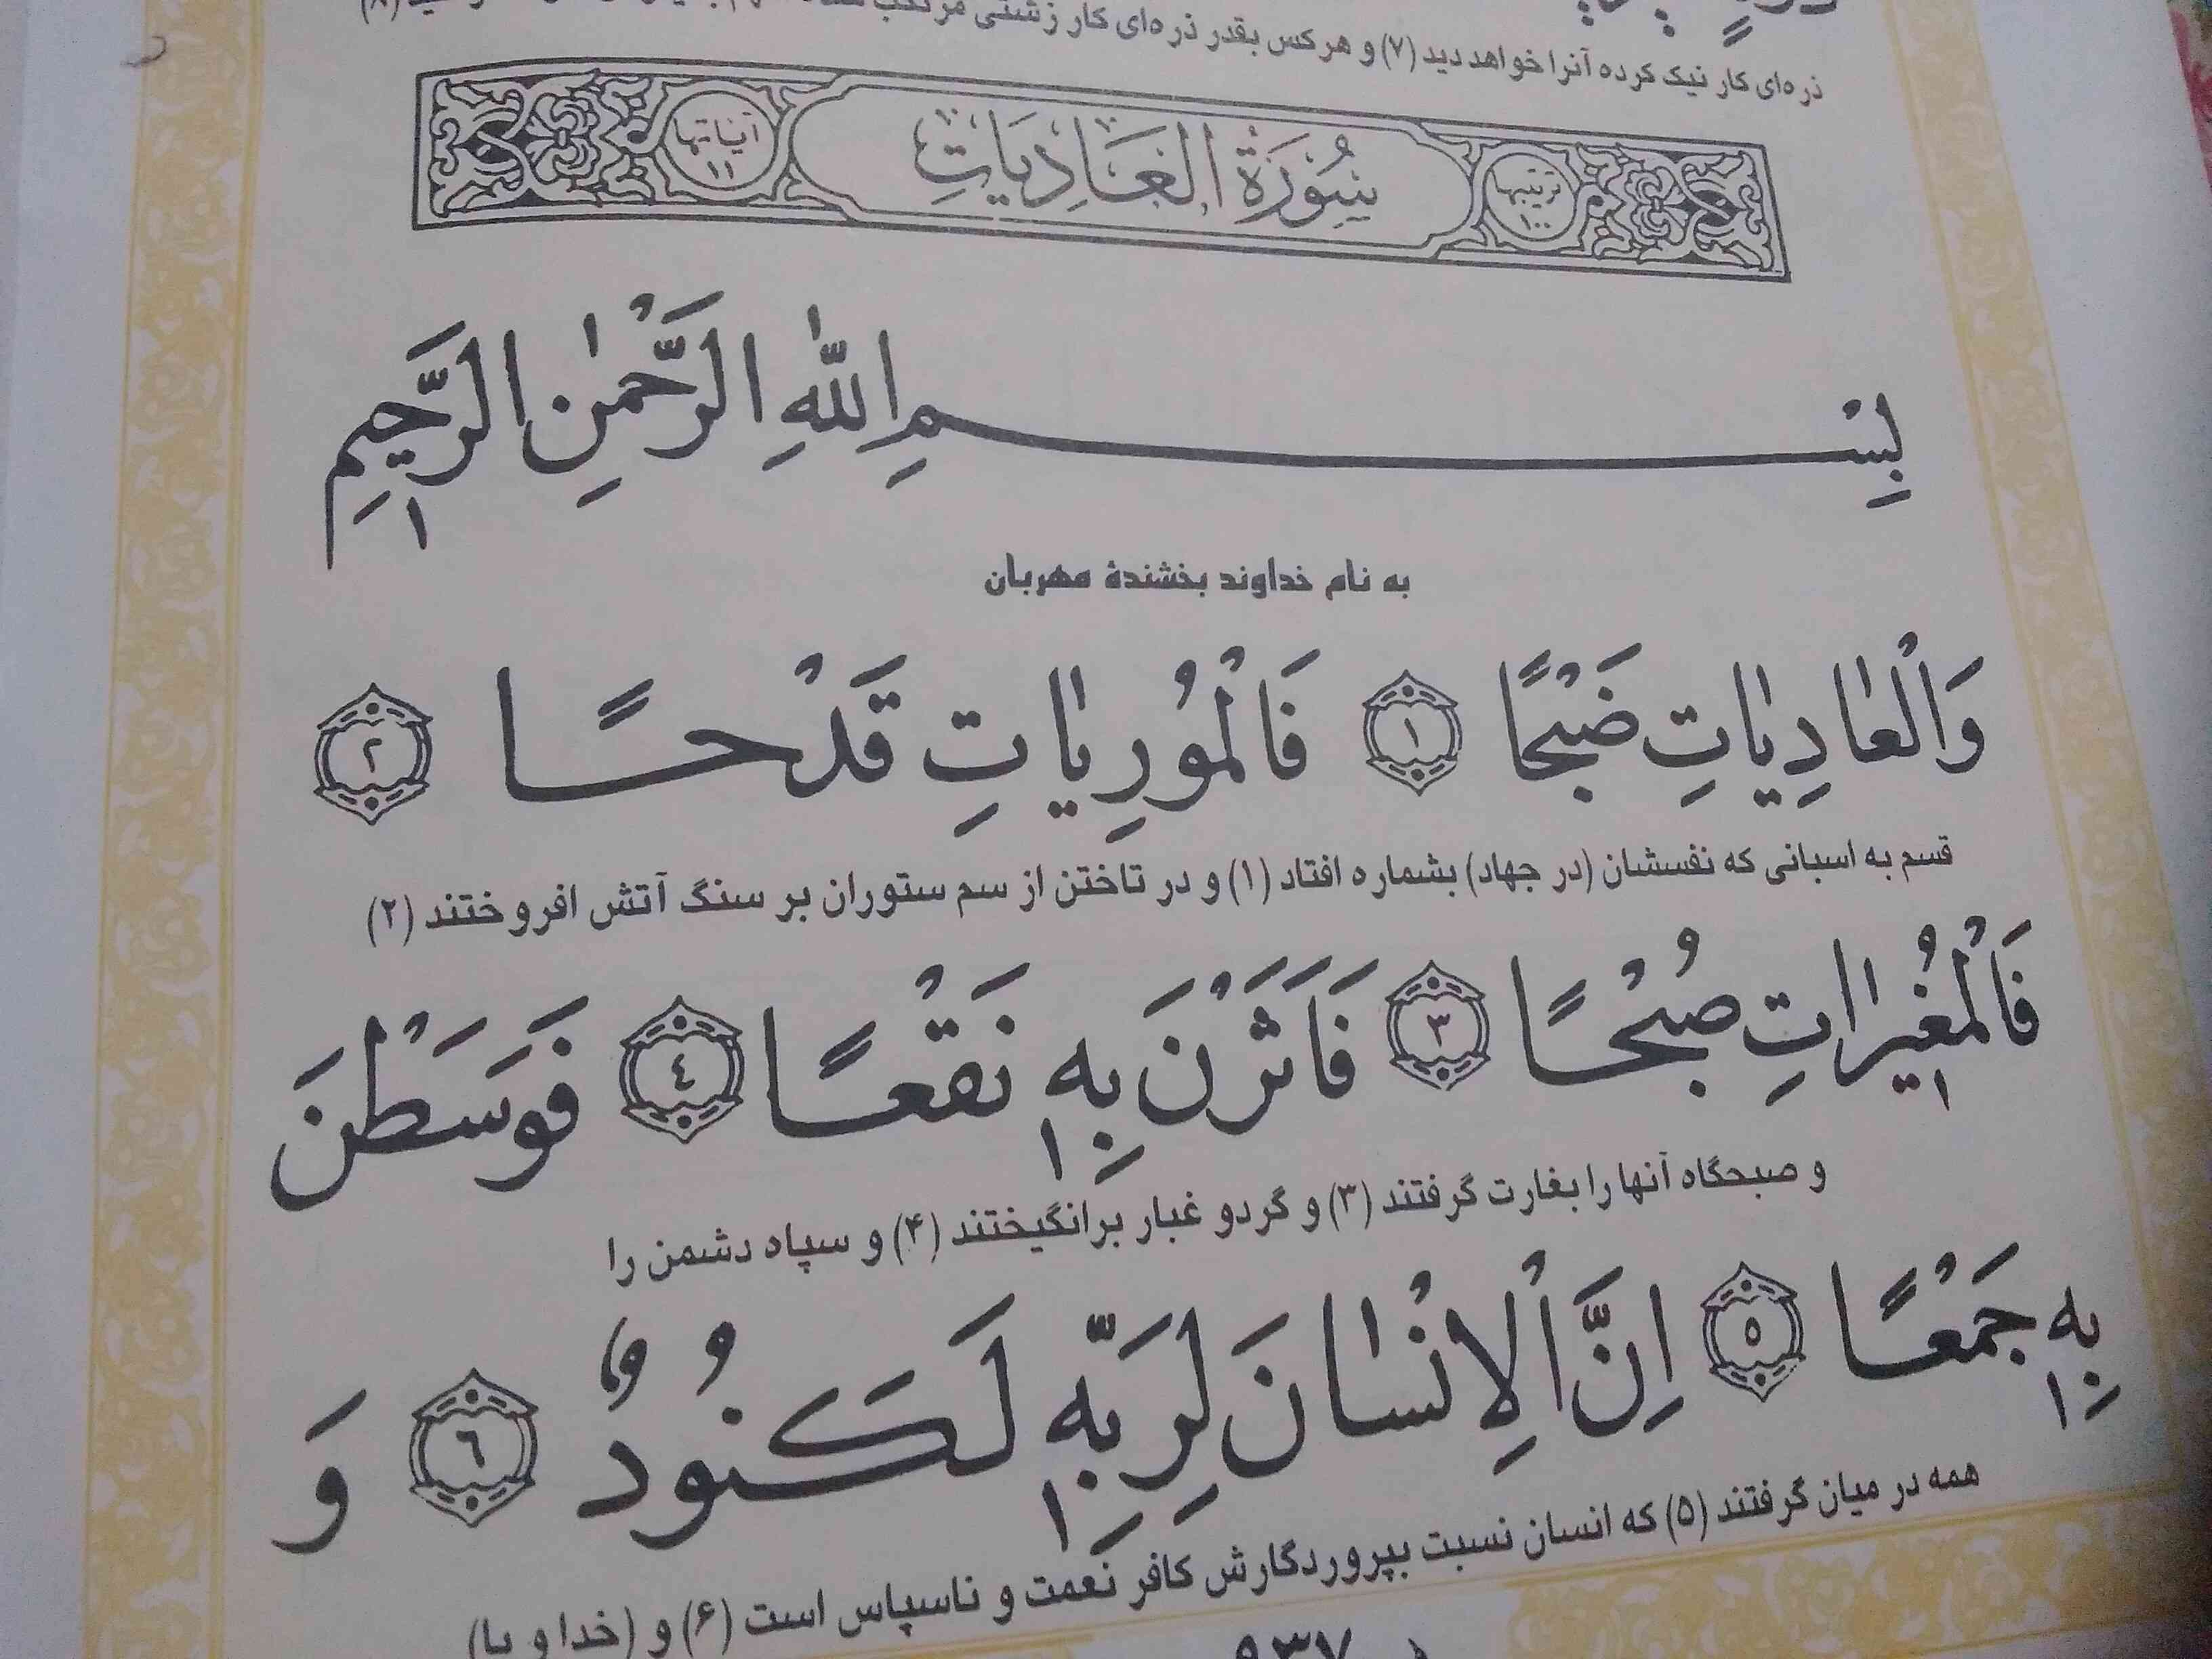 ذره‌ای کار نیک کرده آنرا خواهد دید (۷) و هر کس بقدر ذره‌ای کار زشتی مرتکب شده
آیاتها ۱۱ سُورَةُ العَادِيَاتِ ترتیبها ۱۰۰
بِسْمِ اللّٰهِ الرَّحْمٰنِ الرَّحِيمِ
به نام خداوند بخشندهٔ مهربان
وَالْعٰادِيٰاتِ ضَبْحًا ﴿١﴾ فَالْمُورِيٰاتِ قَدْحًا ﴿٢﴾
قسم به اسبانی که نفسشان (در جهاد) بشماره افتاد (۱) و در تاختن از سم ستوران بر سنگ آتش افروختند (۲)
فَالْمُغِيرٰاتِ صُبْحًا ﴿٣﴾ فَاَثَرْنَ بِهِ نَقْعًا ﴿٤﴾ فَوَسَطْنَ
و صبحگاه آنها را بغارت گرفتند (۳) و گردو غبار برانگیختند (۴) و سپاه دشمن را
بِهِ جَمْعًا ﴿٥﴾ اِنَّ الْاِنْسٰانَ لِرَبِّهِ لَكَنُودٌ ﴿٦﴾ وَ
همه در میان گرفتند (۵) که انسان نسبت بپروردگارش کافر نعمت و ناسپاس است (۶) و (خدا و یا)